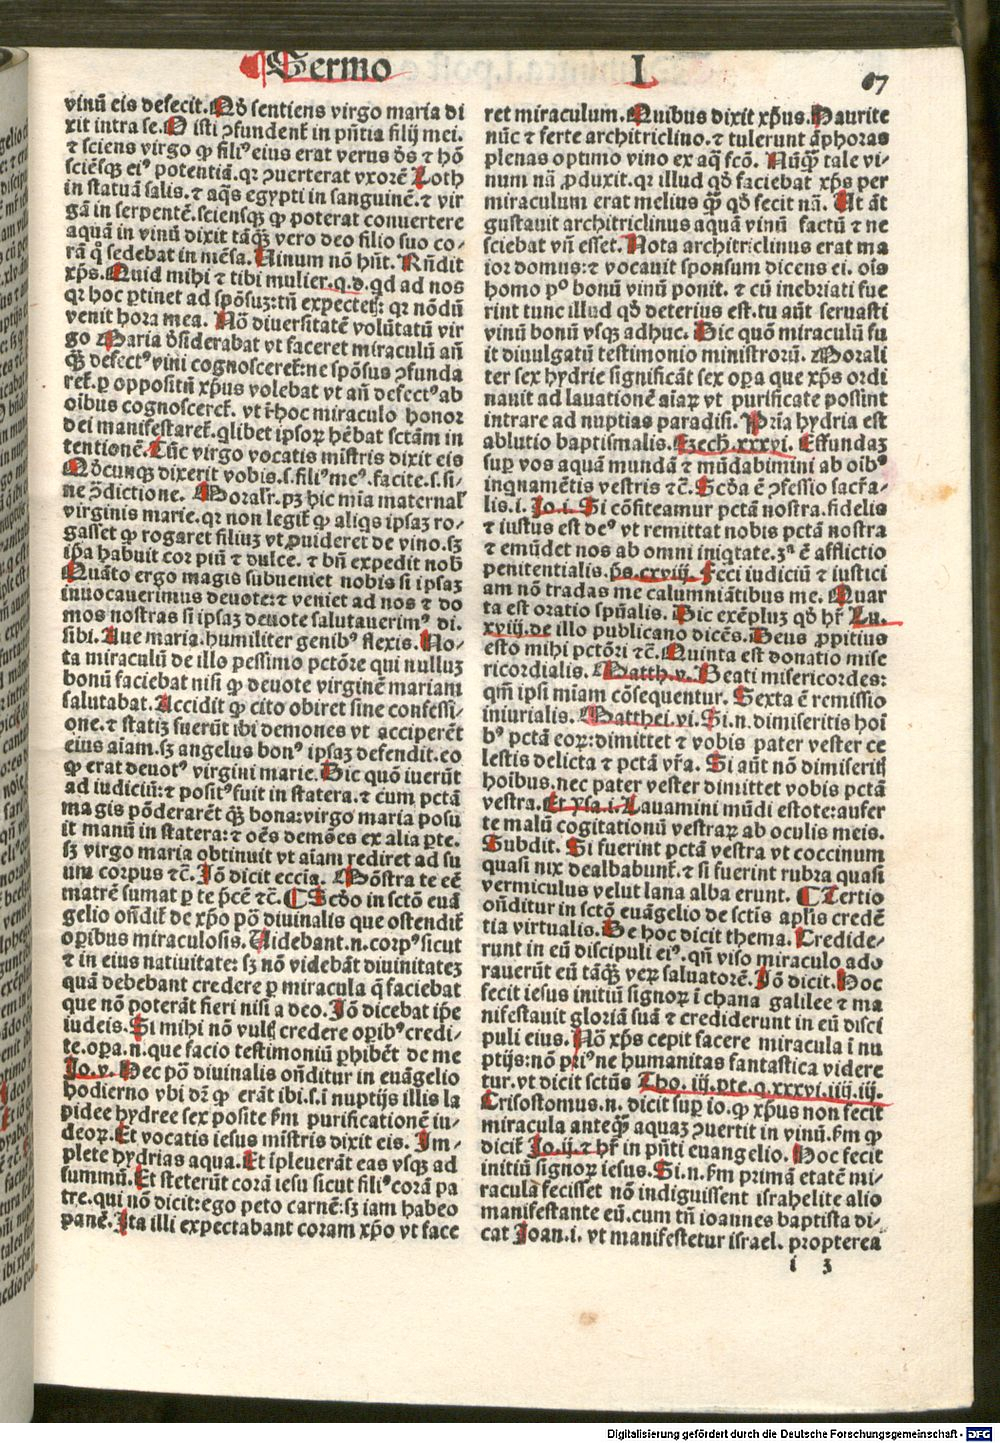 Sermo I
67
vinũ eis defecit. Qđ sentiens virgo maria di
xit intra se. O isti ɔfundent̃ in pñtia filij mei.
⁊ sciens virgo ꝙ filiꝰ eius erat verus d̃s ⁊ hõ
sciẽsqꝫ eiꝰ potentiã. qꝛ ɔuerterat vxorẽ Loth
in statuã salis. ⁊ aq̃s egypti in sanguinẽ. ⁊ vir
gã in serpentẽ. sciensqꝫ ꝙ poterat conuertere
aquã in vinũ dixit tãqꝫ̃ vero deo filio suo co/
rã q̃ sedebat in mẽsa. Uinum nõ hñt. Rñdit
xp̃s. Quid mihi ⁊ tibi mulier. q. d. qd ad nos
qꝛ hoc ꝑtinet ad spõsuꝫ: tñ expectetꝫ: qꝛ nõdũ
venit hora mea. Nõ diuersitatẽ volũtatũ vir
go Maria d̃siderabat vt faceret miraculũ añ
qꝫ̃ defectꝰ vini cognosceret̃: ne spõsus ɔfunda
ret̃. ꝑ oppositũ xp̃us volebat vt añ defectꝰ ab
oibus cognosceret̃. vt ĩ hoc miraculo honor
dei manifestaret̃. qlibet ipsoꝝ hẽbat sctãm in
tentionẽ. Tũc virgo vocatis mĩstris dixit eis
Qđcunqꝫ dixerit vobis. s. filiꝰ meꝰ. facite. s. si/
ne ɔ̃dictione. Moralr̃. pꝫ hic mĩa maternal̃
virginis marie. qꝛ non legit̃ ꝙ aliqs ipsaꝫ ro/
gasset ꝙ rogaret filiuꝫ vt ꝓuideret de vino. sꝫ
ip̃a habuit cor piũ ⁊ dulce. ⁊ bñ expedit nob̃
Quãto ergo magis subueniet nobis si ipsaꝫ
inuocauerimus deuote: ⁊ veniet ad nos ⁊ do
mos nostras si ipsaꝫ deuote salutauerimꝰ di/
sibi. Aue maria. humiliter genibꝰ flexis. No/
ta miraculũ de illo pessimo pctõre qui nulluꝫ
bonũ faciebat nisi ꝙ deuote virginẽ mariam
salutabat. Accidit ꝙ cito obiret sine confessi/
one. ⁊ statiꝫ fuerũt ibi demones vt acciperẽt
eius aĩam. sꝫ angelus bonꝰ ipsaꝫ defendit. eo
ꝙ erat deuotꝰ virgini marie. Sic quõ iuerũt
ad iudiciũ: ⁊ positꝰ fuit in statera. ⁊ cum pctã
magis põderarẽt qꝫ̃ bona: virgo maria posu
it manũ in statera: ⁊ oẽs demões ex alia ꝑte.
sꝫ virgo maria obtinuit vt aĩam rediret ad su
um corpus ⁊c̃. Iõ dicit eccĩa. Mõstra te eẽ
matrẽ sumat ꝑ te p̃cẽ ⁊c̃. ¶ Scd̃o in sctõ euã
gelio oñdit̃ de xp̃o põ diuinalis que ostendit̃
oꝑibus miraculosis. Uidebant. n. corpꝰ sicut
⁊ in eius natiuitate: sꝫ nõ videbãt diuinitateꝫ
quã debebant credere ꝑ miracula q̃ faciebat
que nõ poterãt fieri nisi a deo. Iõ dicebat ip̃e
iudeis. Si mihi nõ vult̃ credere oꝑibꝰ credi/
te. oꝑa. n. que facio testimoniũ ꝑhibẽt de me
Jo. v. Hec põ diuinalis oñditur in euãgelio
hodierno vbi dꝛ̃ ꝙ erãt ibi. s. ĩ nuptijs illis la
pidee hydree sex posite ẞm purificationẽ iu/
deoꝝ. Et vocatis iesus mĩstris dixit eis. Im/
plete hydrias aqua. Et ĩpleuerãt eas vsqꝫ ad
summũ. Et steterũt corã iesu sicut filiꝰ corã pa
tre. qui nõ dicit: ego peto carnẽ: sꝫ iam habeo
panẽ. Ita illi expectabant coram xp̃o vt face
ret miraculum. Quibus dixit xp̃us. Haurite
nũc ⁊ ferte architriclino. ⁊ tulerunt ãphoras
plenas optimo vino ex aq̃ fcõ. Nũqꝫ̃ tale vi/
num nã ꝓduxit. qꝛ illud qđ faciebat xp̃s per
miraculum erat melius qꝫ̃ qđ fecit nã. Ut ãt
gustauit architriclinus aquã vinũ factũ ⁊ ne
sciebat vñ esset. Nota architriclinus erat ma
ior domus: ⁊ vocauit sponsum dicens ei. oĩs
homo pº bonũ vinũ ponit. ⁊ cũ inebriati fue
rint tunc illud qđ deterius est. tu aũt seruasti
vinũ bonũ vsqꝫ adhuc. Sic quõ miraculũ fu
it diuulgatũ testimonio ministroꝝ. Morali
ter sex hydrie significãt sex oꝑa que xp̃s ordi
nauit ad lauationẽ aĩaꝝ vt purificate possint
intrare ad nuptias paradisi. Pr̃ia hydria est
ablutio baptismalis. Ezech. xxxvi. Effundaꝫ
suꝑ vos aquã mundã ⁊ mũdabimini ab oibꝰ
inqnamẽtis vestris ⁊c̃. Scd̃a ẽ ɔfessio sacr̃a/
lis. i. Jo. i. Si cõfiteamur pctã nostra. fidelis
⁊ iustus est deꝰ vt remittat nobis pctã nostra
⁊ emũdet nos ab omni iniqtate. 3ª ẽ afflictio
penitentialis. p̃s. cxviij. Feci iudiciũ ⁊ iustici
am nõ tradas me calumniãtibus me. Quar
ta est oratio spñalis. Sic exẽpluꝫ qđ hr̃ Lu.
xviij. de illo publicano dicẽs. Deus ꝓpitius
esto mihi pctõri ⁊c̃. Quinta est donatio mise
ricordialis. Matth. v. Beati misericordes:
qm̃ ipsi mĩam cõsequentur. Sexta ẽ remissio
iniurialis. Matthei. vi. Si. n. dimiseritis hoĩ
bꝰ pctã eoꝝ: dimittet ⁊ vobis pater vester ce
lestis delicta ⁊ pctã vr̃a. Si aũt nõ dimiserit̃
hoibus. nec pater vester dimittet vobis pctã
vestra. Et ysa. i. Lauamini mũdi estote: aufer
te malũ cogitationũ vestraꝝ ab oculis meis.
Subdit. Si fuerint pctã vestra vt coccinum
quasi nix dealbabunt̃. ⁊ si fuerint rubra quasi
vermiculus velut lana alba erunt. ¶ Tertio
oñditur in sctõ euãgelio de sctis apl̃is credẽ
tia virtualis. De hoc dicit thema. Credide/
runt in eũ discipuli eiꝰ. qñ viso miraculo ado
rauerũt eũ tãqꝫ̃ veꝝ saluatorẽ. Iõ dicit. Hoc
fecit iesus initiũ signoꝝ ĩ chana galilee ⁊ ma
nifestauit gloriã suã ⁊ crediderunt in eũ disci
puli eius. Nõ xp̃s cepit facere miracula ĩ nu
ptijs: nõ pri' ne humanitas fantastica videre
tur. vt dicit sctũs Tho. iij. pte. q. xxxvi. iiij. iij.
Crisostomus. n. dicit suꝑ io. ꝙ xp̃us non fecit
miracula anteqꝫ̃ aquaꝫ ɔuertit in vinũ. ẞm ꝙ
dicit̃ Jo. ij. ⁊ hr̃ in pñti euangelio. Hoc fecit
initiũ signoꝝ iesus. Si. n. ẞm primã etatẽ mi/
racula fecisset nõ indiguissent israhelite alio
manifestante eũ. cum tñ ioannes baptista di/
cat Joan. i. vt manifestetur israel. propterea
i 3
Digitalisierung gefördert durch die Deutsche Forschungsgemeinschaft - DFG